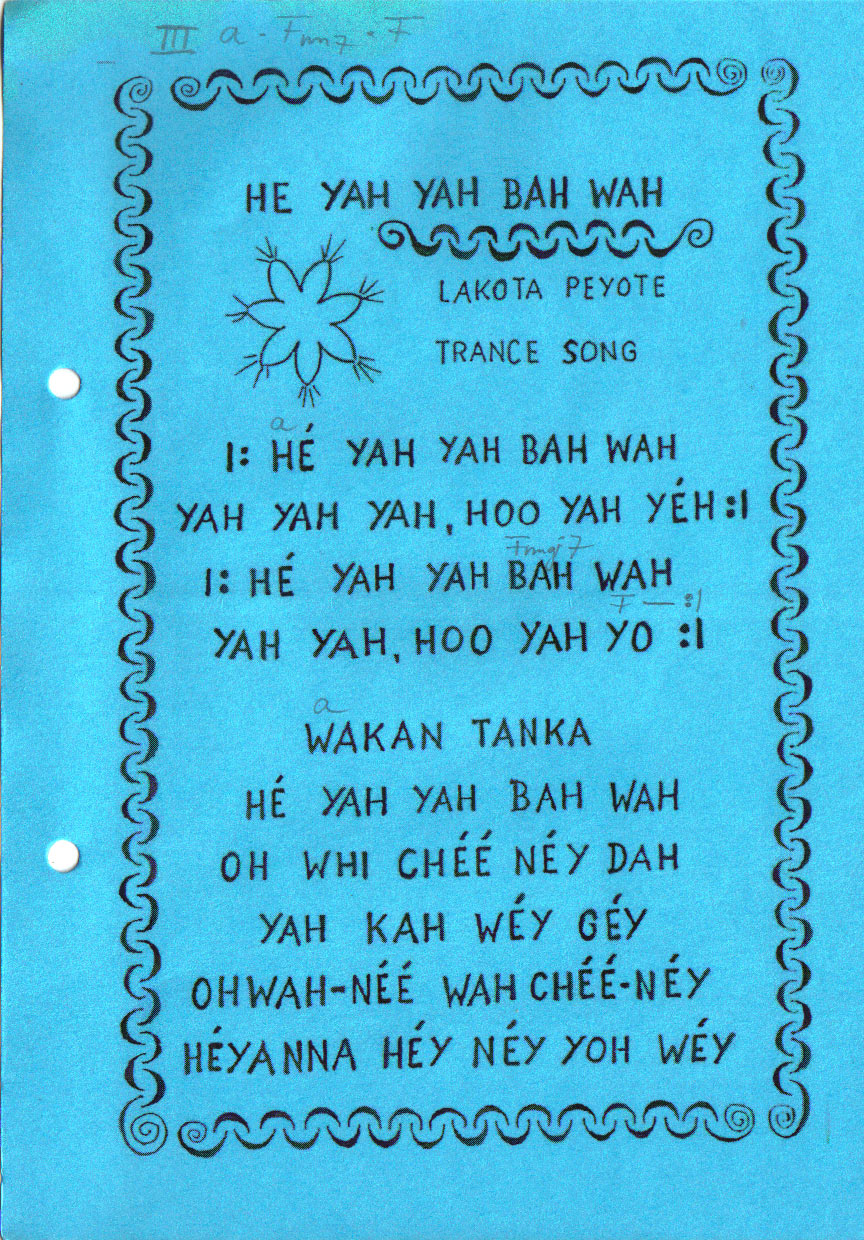 III a - Fmn7 - F
HE YAH YAH BAH WAH
LAKOTA PEYOTE
TRANCE SONG
a
I: HÉ YAH YAH BAH WAH
YAH YAH YAH, HOO YAH YÉH :I
Fmaj7
I: HÉ YAH YAH BAH WAH
F — :|
YAH YAH, HOO YAH YO :I
a
WAKAN TANKA
HÉ YAH YAH BAH WAH
OH WHI CHÉÉ NÉY DAH
YAH KAH WÉY GÉY
OHWAH-NÉÉ WAH CHÉÉ-NÉY
HÉYANNA HÉY NÉY YOH WÉY